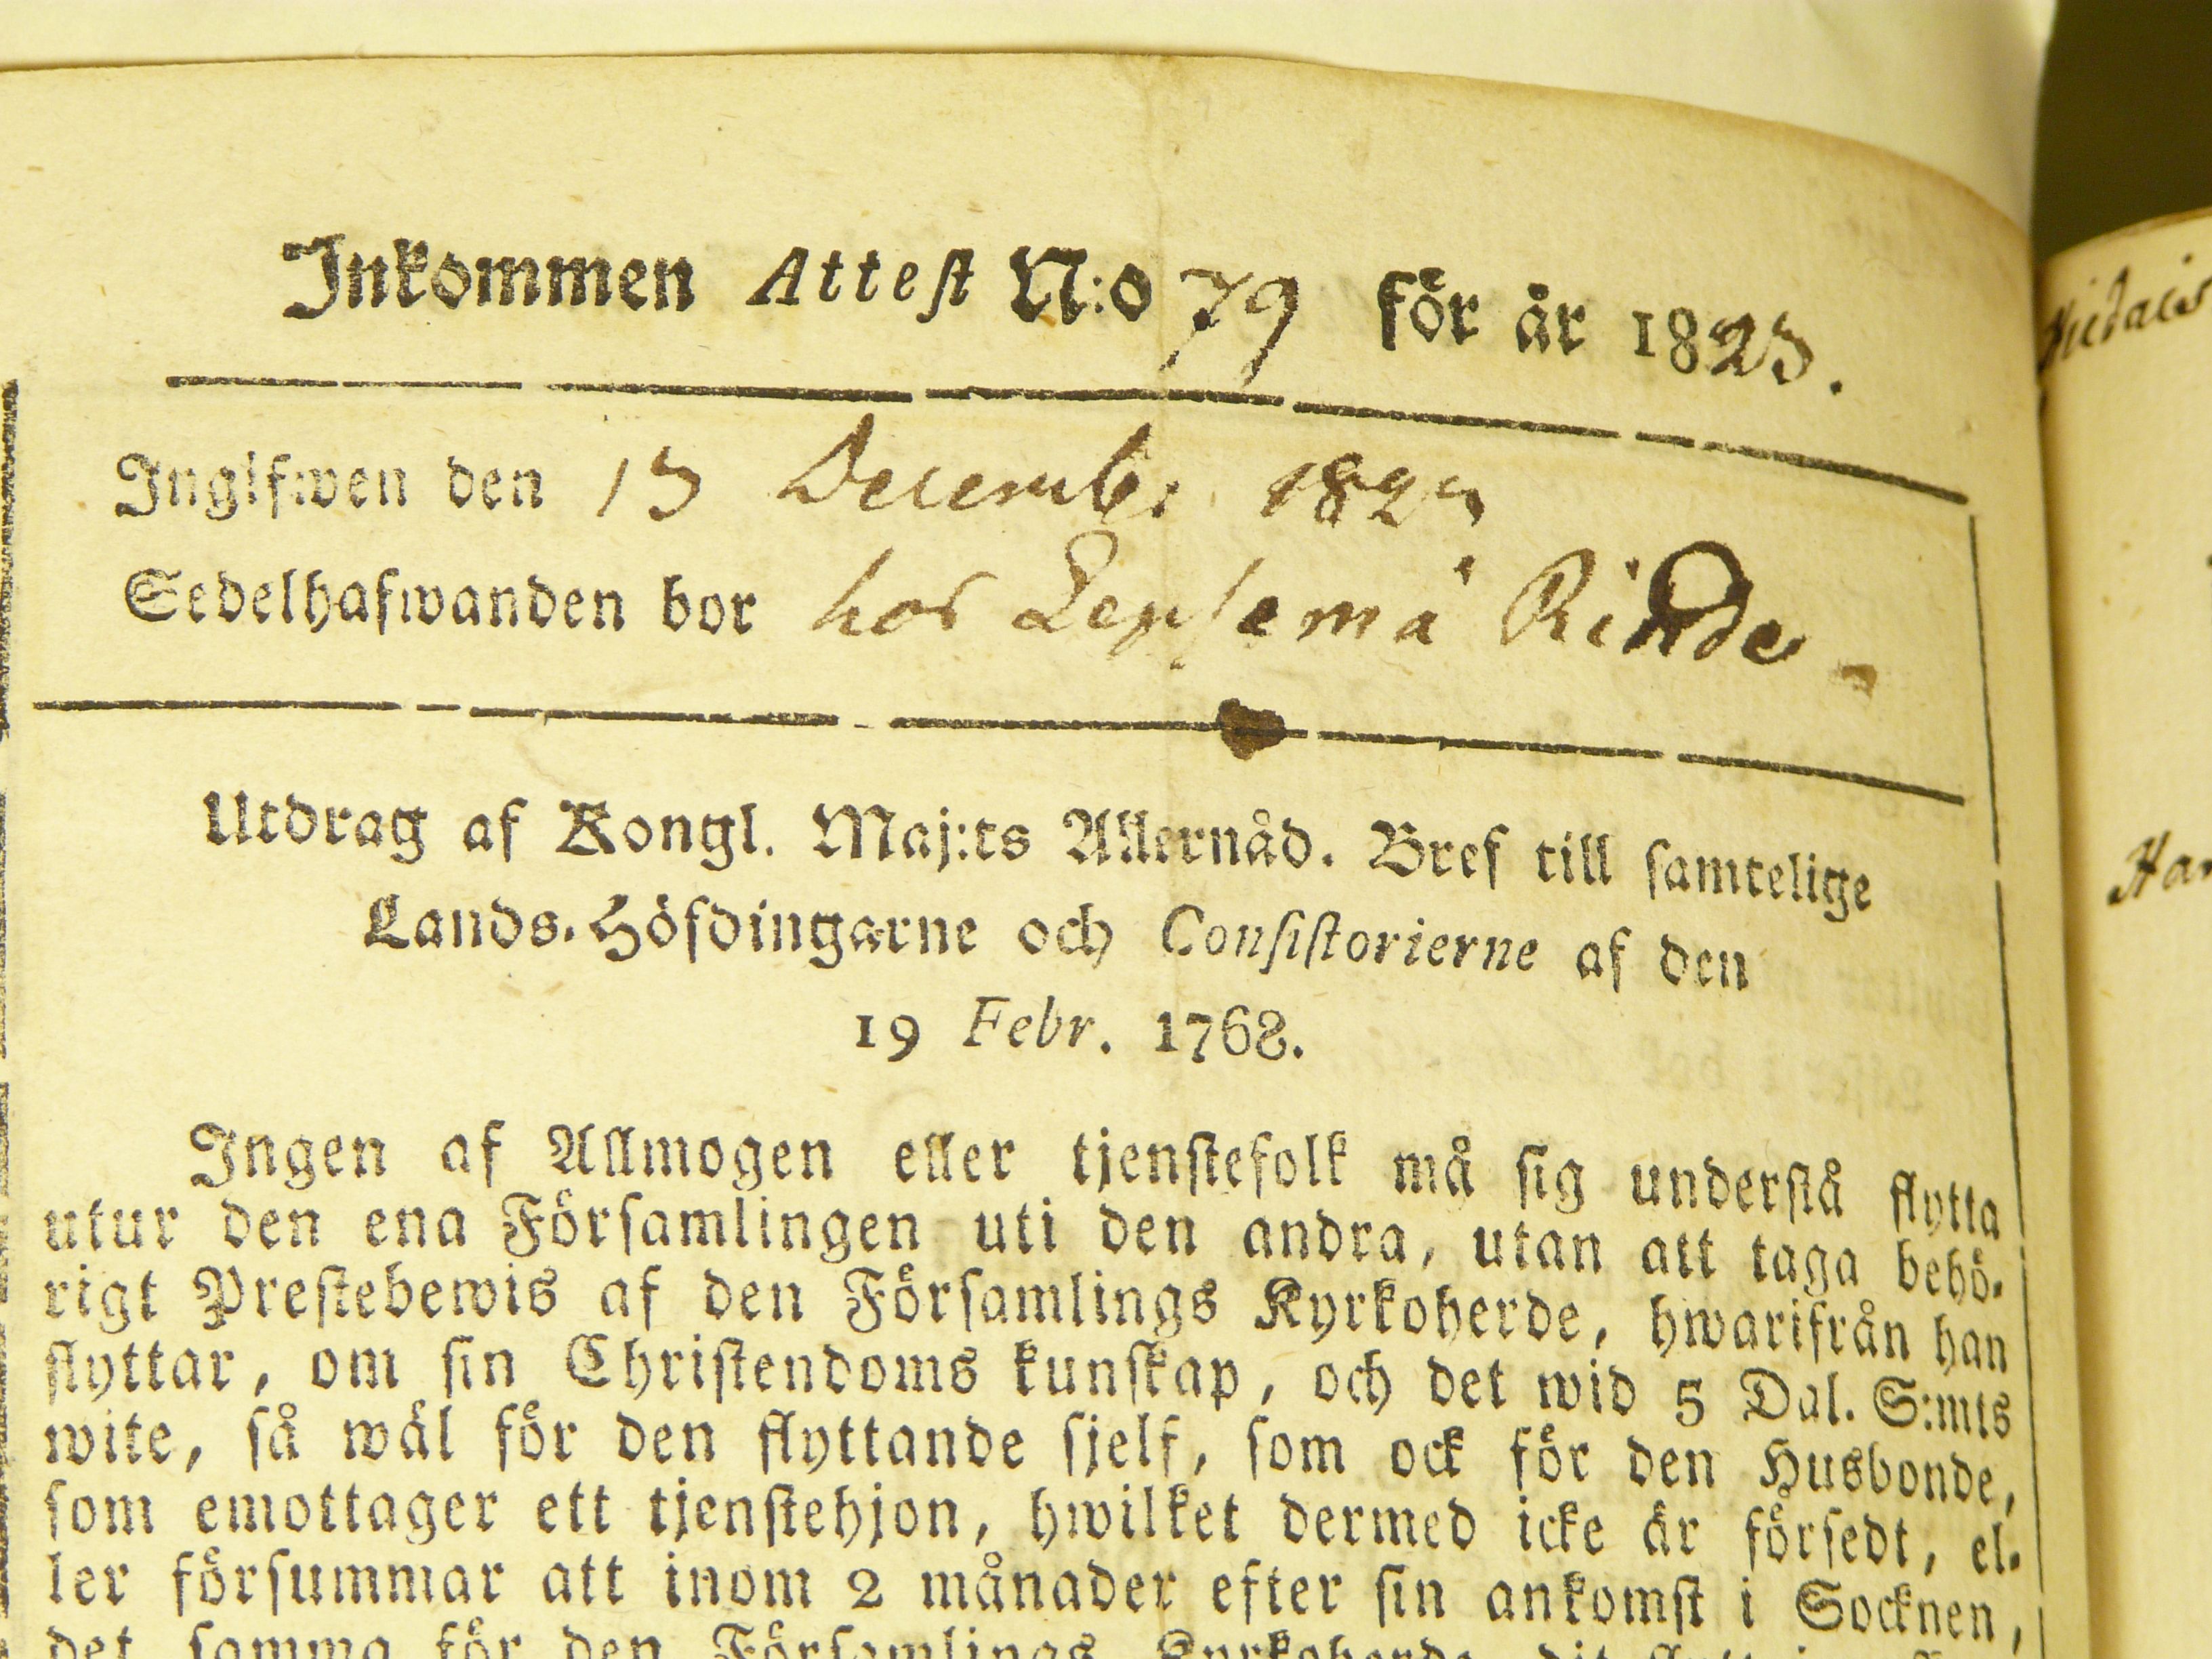 Inkommen Attest N:o 79 för år 1823.
Ingifwen den 13 Decemb: 1823
Sedelhafwanden bor hos Lepsemä Rinde
Utdrag af Kongl. Maj:ts Allernåd. Bref till samtelige
Lands-Höfdingarne och Consistorierne af den
19 Febr. 1768.
Ingen af Allmogen eller tjenstefolk må sig understå flytta
utur den ena Församlingen uti den andra, utan att taga behö-
rigt Prestebewis af den Församlings Kyrkoherde, hwarifrån han
flyttar, om sin Christendoms kunskap, och det wid 5 Dal. S:mts
wite, så wäl för den flyttande sjelf, som ock för den Husbonde,
som emottager ett tjenstehjon, hwilket dermed icke är försedt, el-
ler försummar att inom 2 månader efter sin ankomst i Socknen,
det samma för den Församlings Kyrkoherde